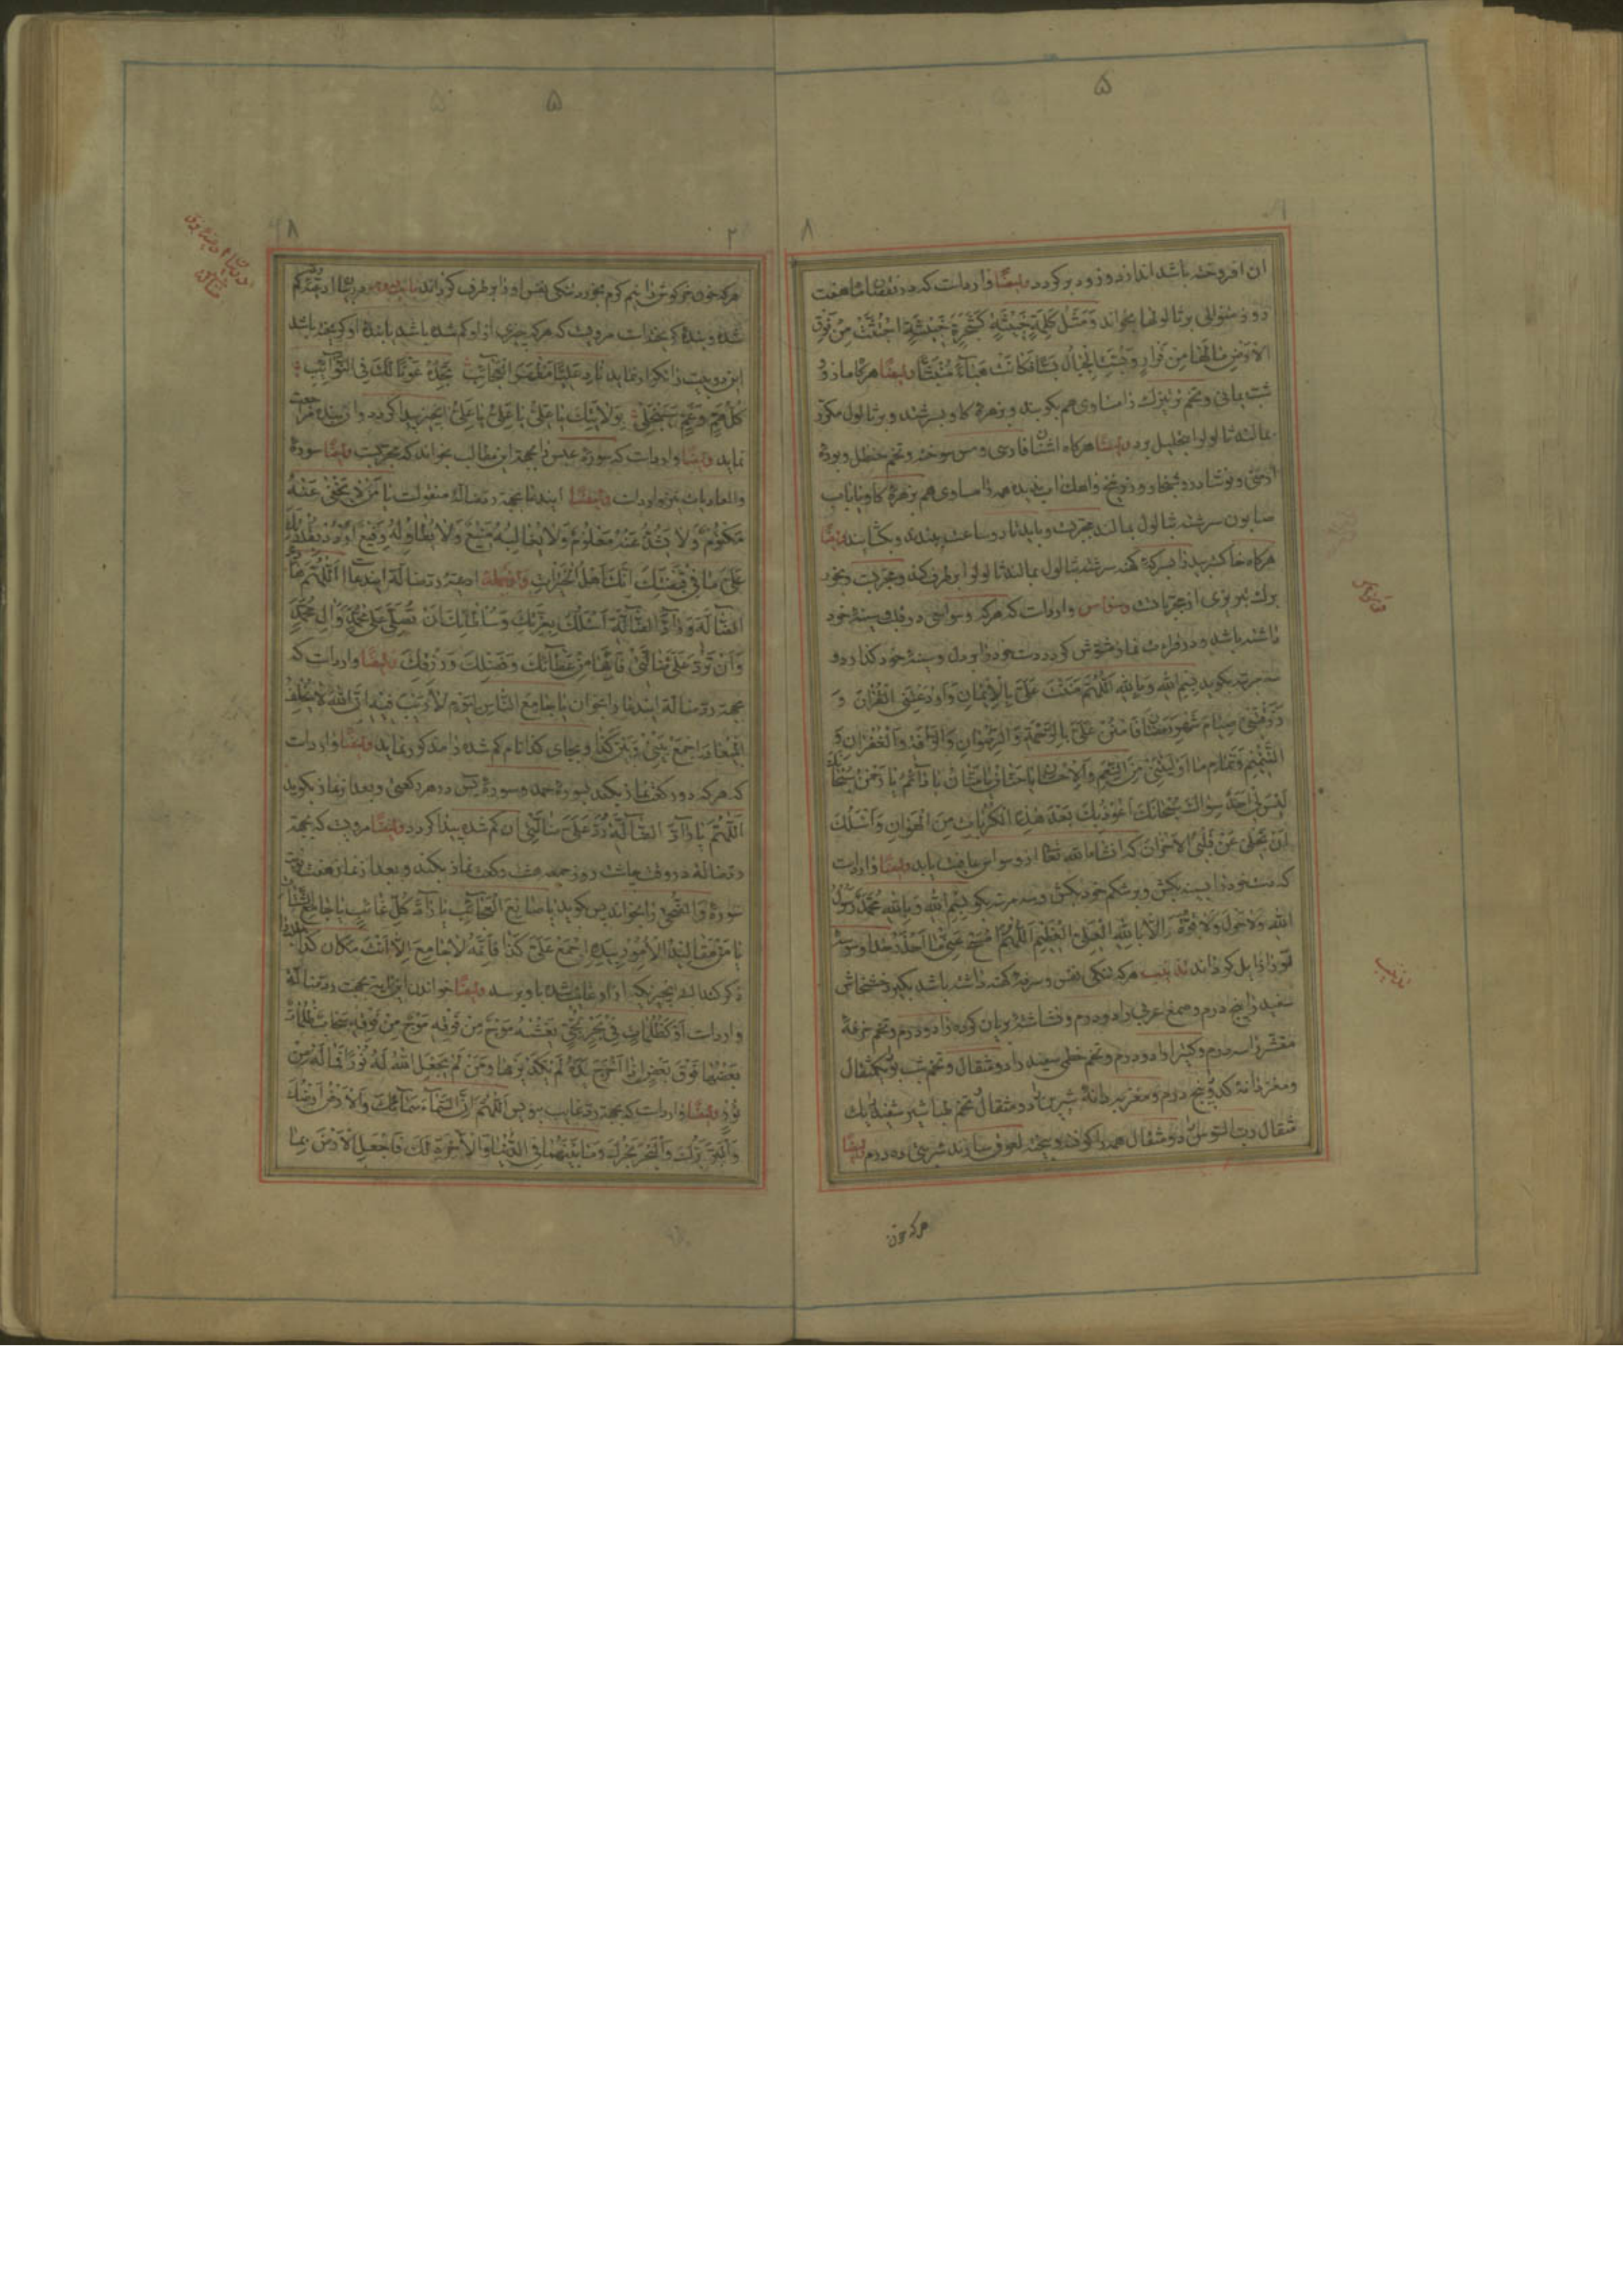 ۵
۸
ان افروخته باشد اندازد و زود برکردد وایضا وارد است که در نقصان ماه هفت
روز متوالی بر ثالولها بخواند وَمَثَلُ كَلِمَةٍ خَبِيثَةٍ كَشَجَرَةٍ خَبِيثَةٍ اجْتُثَّتْ مِنْ فَوْقِ
الْاَرْضِ مَا لَهَا مِنْ قَرَارٍ وَبُسَّتِ الْجِبَالُ بَسًّا فَكَانَتْ هَبَاءً مُنْبَثًّا وایضا هرکاه مازو و
شب یمانی و تخم را مساوی هم بکوبند و بزهرۀ کاو بسرشند و بر ثالول مکرر
بمالند ثالول را بتحلیل برد وایضا هرکاه اشنان فارسی و مس سوخته و تخم حنظل و بورۀ
ارمنی و نوشادر و زرنیخ و اهک اب ندیده همه را مساوی هم بزهرۀ کاو یا باب
صابون سرشته بثالول بمالند مجربست و باید تا دو ساعت ببندند و بکشایند وایضا
هرکاه خاکستر بید را بسرکۀ کهنه سرشته بثالول بمالند ثالول را برطرف کند و مجربست و بخور
برک از مجربات است وسواس وارد است که هرکه وسواسی در دل و سینۀ خود
داشته باشد و در قراءت نماز مشوش کردد دست خود را بر دل و سینۀ خود کذارد و
سه مرتبه بکوید بِسْمِ اللهِ وَبِاللهِ اَللّٰهُمَّ مَنَنْتَ عَلَيَّ بِالْاِيمَانِ وَاَوْدَعْتَنِي الْقُرْاٰنَ وَ
رَزَقْتَنِي صِيَامَ شَهْرِ رَمَضَانَ فَامْنُنْ عَلَيَّ بِالرَّحْمَةِ وَالرِّضْوَانِ وَالرَّأْفَةِ وَالْغُفْرَانِ وَ
تَمَامِ مَا اَوْلَيْتَنِي مِنَ النِّعَمِ وَالْاِحْسَانِ يَا حَنَّانُ يَا مَنَّانُ يَا دَائِمُ يَا رَحْمٰنُ سُبْحَانَكَ
لَيْسَ لِي اَحَدٌ سِوَاكَ سُبْحَانَكَ اَعُوذُ بِكَ بَعْدَ هٰذِهِ الْكَرَامَاتِ مِنَ الْهَوَانِ وَاَسْئَلُكَ
اَنْ تُجَلِّيَ عَنْ قَلْبِيَ الْاَحْزَانَ که انشاءالله تعالی از وسواس عافیت یابد وایضا وارد است
که دست خود را بسینه بکش و بر شکم خود بکش و سه مرتبه بکو بِسْمِ اللهِ وَبِاللهِ مُحَمَّدٌ رَسُولُ
اللهِ وَلَا حَوْلَ وَلَا قُوَّةَ اِلَّا بِاللهِ الْعَلِيِّ الْعَظِيمِ اَللّٰهُمَّ امْسَحْ عَنِّي مَا اَحْذَرُ خدا وسوسۀ
تو را زایل کرداند هرکه تنکی نفس و سرفۀ کهنه داشته باشد بکیرد خشخاش
سفید را پنج درم و صمغ عربی را دو درم و نشاستۀ بریان کرده را دو درم و تخم خرفۀ
مقشر را سه درم و کتیرا را دو درم و تخم خطمی سفید را دو مثقال و یکمثقال
و مغز دانۀ کدو پنج درم و مغز به دانۀ شیرین را دو مثقال و تخم سفید یک
مثقال رب السوس دو مثقال همه را کوفته و بیخته لعوق سازند شربتی ده درم وایضا
هرکه خون
وسواس
۵
۸
۲
هرکه خون خرکوش را نیم کرم بخورد تنکی نفس او را برطرف کرداند
شده و بندۀ کریخته است مرویست که هرکه چیزی از او کم شده باشد یا بندۀ او کریخته باشد
این دو بیت را تکرار نماید نَادِ عَلِيًّا مَظْهَرَ الْعَجَائِبِ تَجِدْهُ عَوْنًا لَكَ فِي النَّوَائِبِ
كُلُّ هَمٍّ وَغَمٍّ سَيَنْجَلِي بِوَلَايَتِكَ يَا عَلِيُّ يَا عَلِيُّ يَا عَلِيُّ انچیز پیدا کردد و ان بنده مراجعت
نماید وایضا وارد است که سورۀ عبس را بجهة این مطالب بخواند که مجربست وایضا سورۀ
والعادیات نیز وارد است وایضا ایندعا بجهة رد ضالة منقولست يَا مَنْ لَا يَخْفٰى عَنْهُ
مَكْتُومٌ وَلَا يَشُذُّ عَنْهُ مَعْلُومٌ وَلَا يُغَالِبُهُ مَنِيعٌ وَلَا يُطَاوِلُهُ رَفِيعٌ اُرْدُدْ بِقُدْرَتِكَ
عَلَيَّ مَا فِي قَبْضَتِكَ اِنَّكَ اَهْلُ الْخَيْرَاتِ ادعیۀ رد ضالة ایندعا است اَللّٰهُمَّ هَادِيَ
الضَّالَّةِ وَرَادَّ الضَّالَّةِ اَسْئَلُكَ بِعِزَّتِكَ وَسُلْطَانِكَ اَنْ تُصَلِّيَ عَلٰى مُحَمَّدٍ وَاٰلِ مُحَمَّدٍ
وَاَنْ تَرُدَّ عَلَيَّ ضَالَّتِي فَاِنَّهَا مِنْ عَطَائِكَ وَفَضْلِكَ وَرِزْقِكَ وایضا وارد است که
بجهة رد ضالة ایندعا را بخوان يَا جَامِعَ النَّاسِ لِيَوْمٍ لَا رَيْبَ فِيهِ اِنَّ اللهَ لَا يُخْلِفُ
الْمِيعَادَ اِجْمَعْ بَيْنِي وَبَيْنَ كَذَا و بجای کذا نام کم شده را مذکور نماید وایضا وارد است
که هرکه دو رکعت نماز بکند بسورۀ حمد و سورۀ یس در هر رکعتی و بعد از نماز بکوید
اَللّٰهُمَّ يَا رَادَّ الضَّالَّةِ رُدَّ عَلَيَّ ضَالَّتِي ان کم شده پیدا کردد وایضا مرویست که بجهة
رد ضالة در وقت چاشت روز جمعه هشت رکعت نماز بکند و بعد از نماز هفت نوبت
سورۀ وَالضُّحٰى را بخواند پس بکوید يَا صَانِعَ الْعَجَائِبِ يَا رَادَّ كُلِّ غَائِبٍ يَا جَامِعَ الشَّتَاتِ
يَا مَنْ مَقَالِيدُ الْاُمُورِ بِيَدِهِ اِجْمَعْ عَلَيَّ كَذَا فَاِنَّهُ لَا جَامِعَ اِلَّا اَنْتَ مکان کذا
ذکر کند البته انچیزیکه از او غایب شده باو برسد وایضا خواندن این ایة بجهت رد ضالة
وارد است اَوْ كَظُلُمَاتٍ فِي بَحْرٍ لُجِّيٍّ يَغْشٰيهُ مَوْجٌ مِنْ فَوْقِهِ مَوْجٌ مِنْ فَوْقِهِ سَحَابٌ ظُلُمَاتٌ
بَعْضُهَا فَوْقَ بَعْضٍ اِذَا اَخْرَجَ يَدَهُ لَمْ يَكَدْ يَرٰيهَا وَمَنْ لَمْ يَجْعَلِ اللهُ لَهُ نُورًا فَمَا لَهُ مِنْ
نُورٍ وایضا وارد است که بجهة رد غایب بنویس اَللّٰهُمَّ اِنَّ السَّمَاءَ سَمَاؤُكَ وَالْاَرْضَ اَرْضُكَ
وَالْبَرَّ بَرُّكَ وَالْبَحْرَ بَحْرُكَ وَمَا بَيْنَهُمَا فِي الدُّنْيَا وَالْاٰخِرَةِ لَكَ فَاجْعَلِ الْاَرْضَ بِمَا